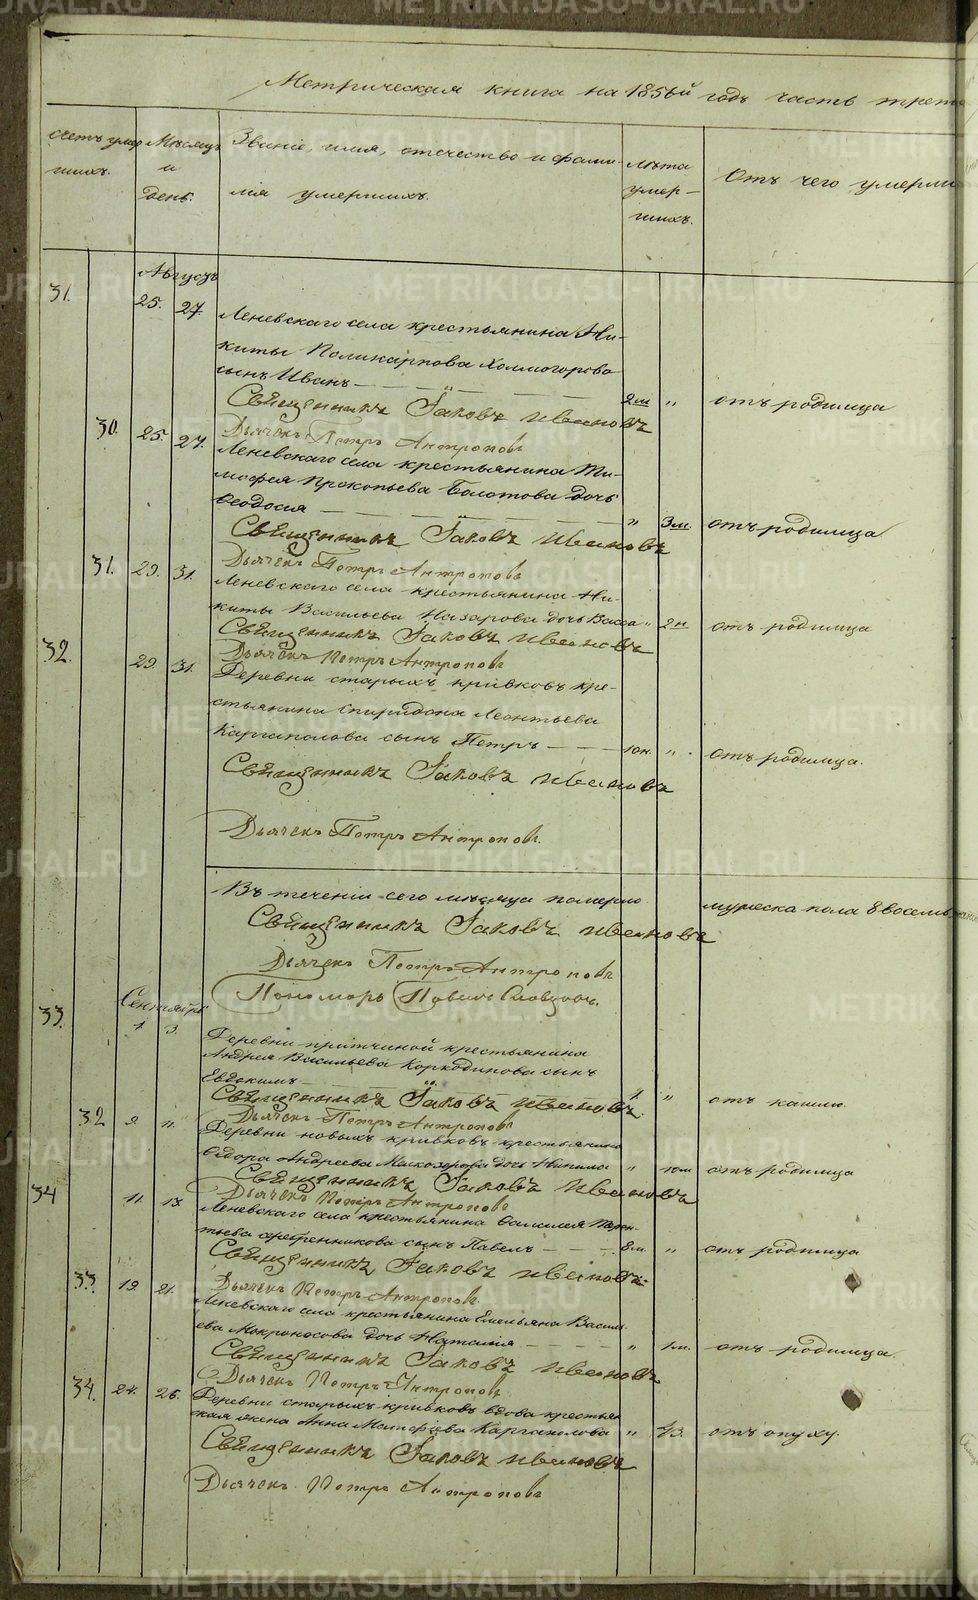 Метрическая книга на 1856й годъ часть трет
Счетъ умер
шихъ.
Мѣсяцъ
и
день.
Званіе, имя, отечество и фами-
лія умершихъ.
лѣта
умер-
шихъ.
Отъ чего умерли
Августъ
31. 25. 27. Леневскаго села крестьянина Ни-
киты Поликарпова Холмогорова
сынъ Иванъ 2 м " отъ родимца
Священникъ Іаковъ Ивановъ
Дьячекъ Петръ Антроповъ
30. 25. 27. Леневскаго села крестьянина Ти-
мофея Прокопьева Болотова дочь
Ѳеодосія " 3 м. отъ родимца
Священникъ Іаковъ Ивановъ
Дьячекъ Петръ Антроповъ
31. 29. 31. Леневскаго села крестьянина Ни-
киты Васильева Назарова дочь Васса " 2 н. отъ родимца
Священникъ Іаковъ Ивановъ
Дьячекъ Петръ Антроповъ
32. 29 31. Деревни старыхъ кривковъ кре-
стьянина Спиридона Леонтьева
Каргаполова сынъ Петръ 10 н. " отъ родимца.
Священникъ Іаковъ Ивановъ
Дьячекъ Петръ Антроповъ.
Въ теченіи сего мѣсяца померло муjеска пола 8 восемь
Священникъ Іаковъ Ивановъ
Дьячекъ Петръ Антроповъ
Пономарь Павелъ Словцовъ.
Сентябрь
33. 1. 3. Деревни притчиной крестьянина
Андрея Васильева Коркодинова сынъ
Евдокимъ " отъ кашлю.
Священникъ Іаковъ Ивановъ.
Дьячекъ Петръ Антроповъ
32 9. 11. Деревни новыхъ кривковъ крестьянина
Ѳедора Андреева дочь " 10 м отъ родимца
Священникъ Іаковъ Ивановъ
Дьячекъ Петръ Антроповъ
34 11. 13. Леневскаго села крестьянина Терен-
тьева Серебренникова сынъ Павелъ 8 м. " отъ родимца
Священникъ Іаковъ Ивановъ
Дьячекъ Петръ Антроповъ.
33. 19. 21. Леневскаго села крестьянина Емельяна Василь-
ева Мокроносова дочь Наталія " 1 м. отъ родимца.
Священникъ Іаковъ Ивановъ
Дьячекъ Петръ Антроповъ
34. 24. 26. Деревни старыхъ кривковъ вдова крестьян
ская жена Анна Каргаполова " отъ опуху.
Священникъ Іаковъ Ивановъ
Дьячекъ Петръ Антроповъ
METRIKI.GASO-URAL.RU